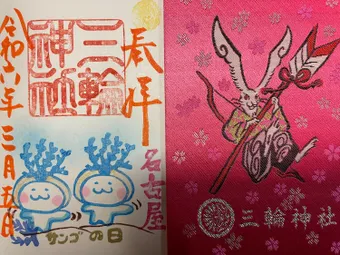 奉拝
三輪
神社
名古屋
令和六年三月五日
サンゴの日
三輪神社